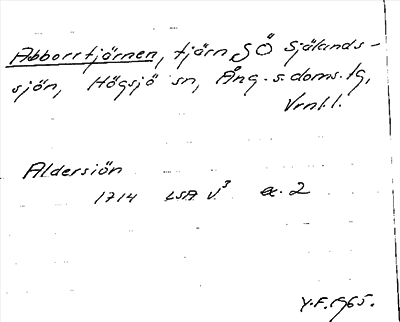 Abborrtjärnen, tjärn SÖ Själands-
sjön, Högsjö sn, Ång. s. doms. tg,
Vrnl. l.
Aldersiön
1714 LSA V³ ex. 2
Y.F. 1965.